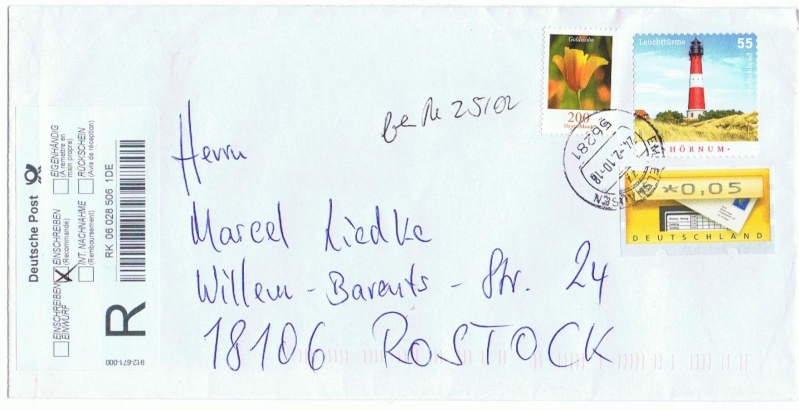 Goldmohn
200
Deutschland
Leuchttürme
55
Deutschland
HÖRNUM
56281
EMMELSHAUSEN
24.-2.10-18
*0,05
DEUTSCHLAND
25/02
Herrn
Marcel Liedke
Willem-Barents-Str. 24
18106 ROSTOCK
Deutsche Post
EINSCHREIBEN EINWURF
X EINSCHREIBEN
(Recommandé)
EIGENHÄNDIG
(A remettre en
main propre)
INT. NACHNAHME
(Remboursement)
RÜCKSCHEIN
(Avis de réception)
RK 06 028 506 1DE
R
912-671-000